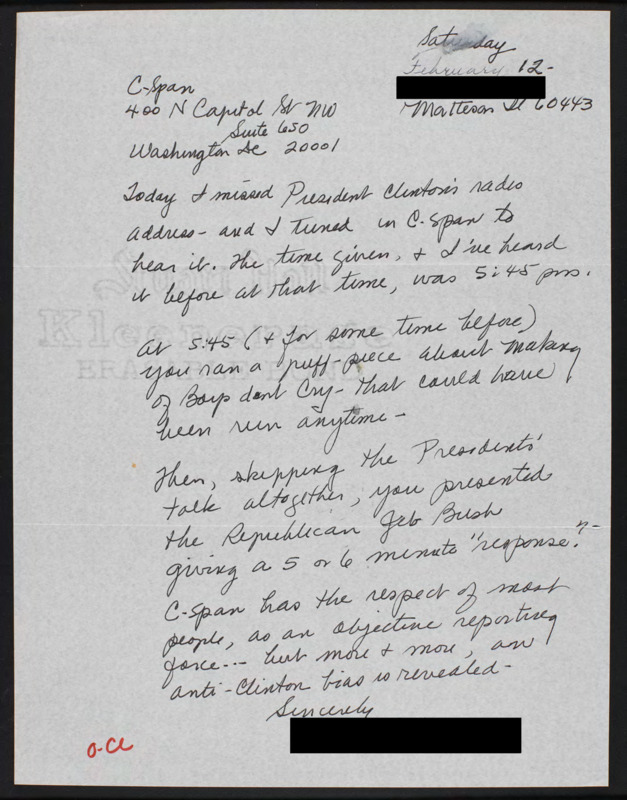 Saturday
February 12-
C-Span
400 N Capitol St NW
Matteson Il 60443
Suite 650
Washington Dc 20001
Today I missed President Clinton's radio
address - and I tuned in C-Span to
hear it. The time given, & I've heard
it before at that time, was 5:45 pm.
At 5:45 (& for some time before)
you ran a puff-piece about making
of Boys dont Cry - that could have
been run anytime -
Then, skipping the Presidents'
talk altogether, you presented
the Republican Jeb Bush
giving a 5 or 6 minute "response."-
C-Span has the respect of most
people, as an objective reporting
force--- but more & more, an
anti-Clinton bias is revealed -
Sincerely
O-Cl